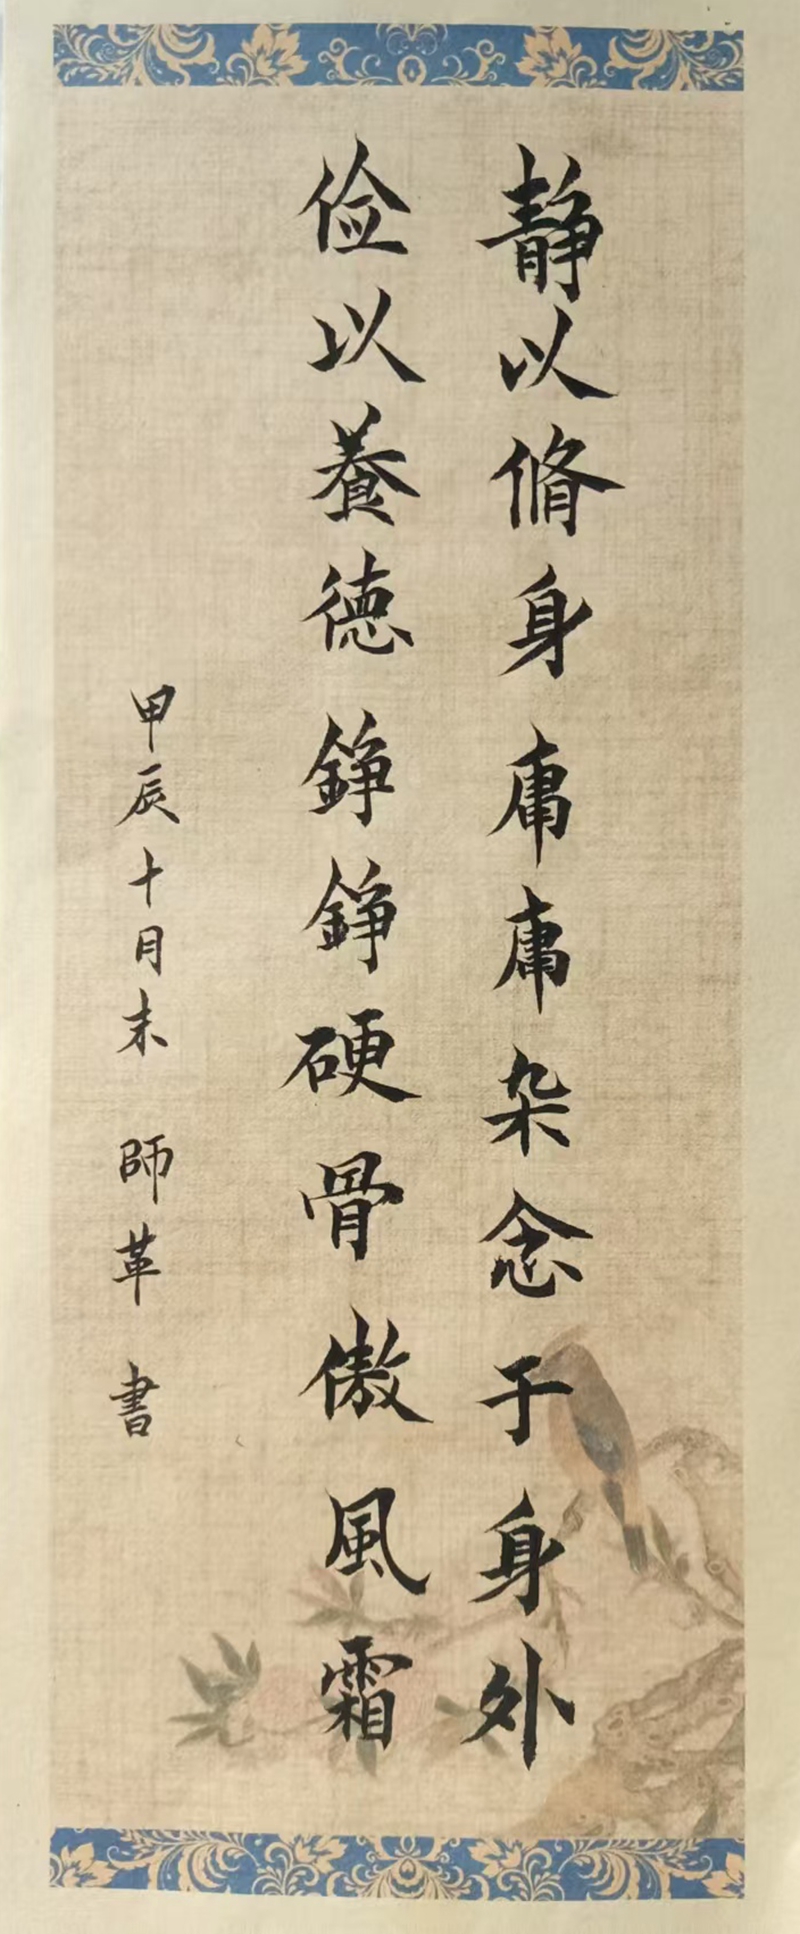 静以脩身庸庸杂念于身外
俭以養德錚錚硬骨傲風霜
甲辰十月末 師革 書